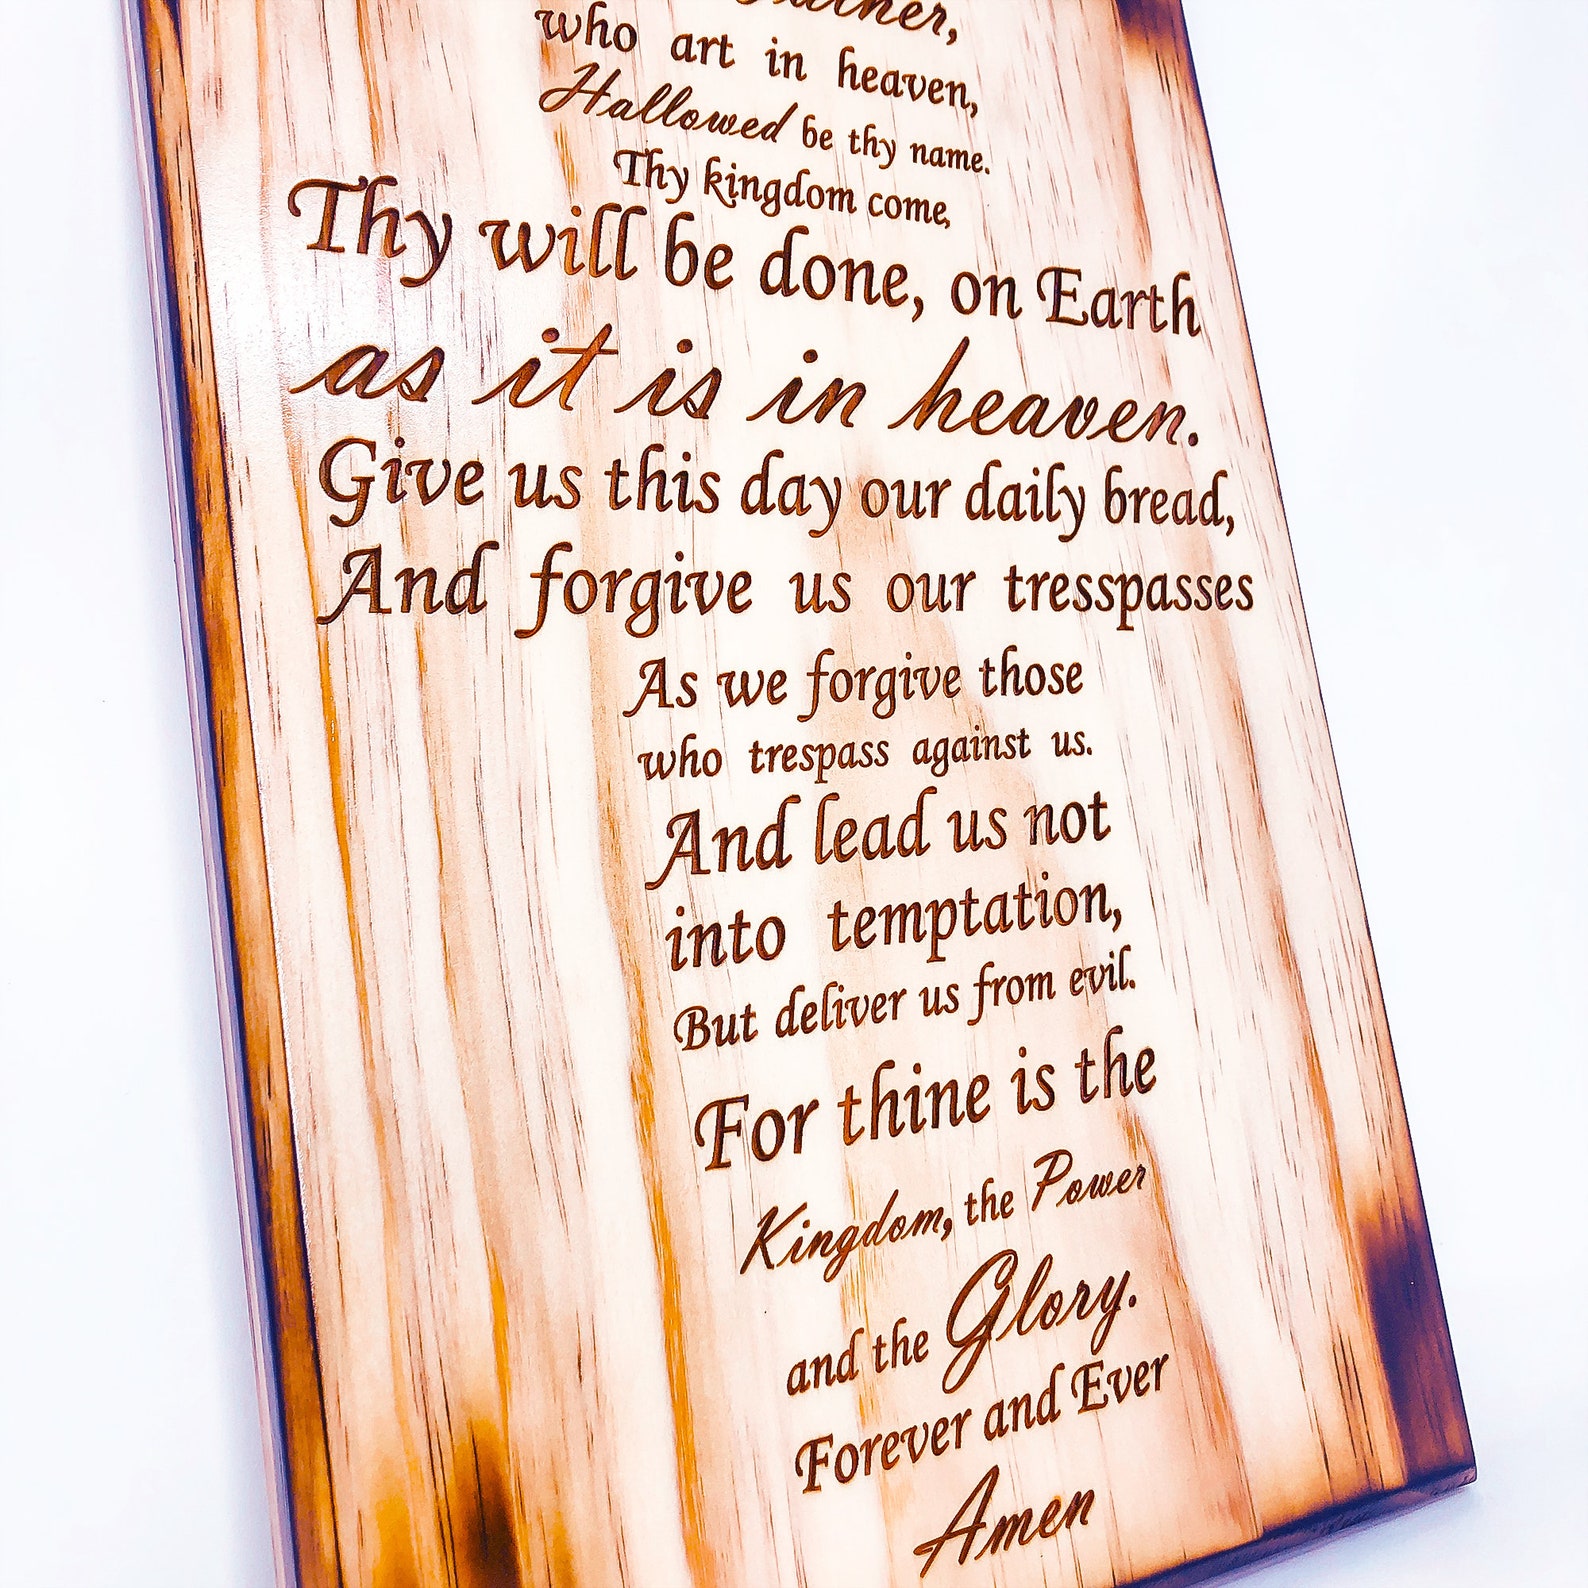 Father,
who art in heaven,
Hallowed be thy name.
Thy kingdom come,
Thy will be done, on Earth
as it is in heaven.
Give us this day our daily bread,
And forgive us our tresspasses
As we forgive those
who trespass against us.
And lead us not
into temptation,
But deliver us from evil.
For thine is the
Kingdom, the Power
and the Glory.
Forever and Ever
Amen